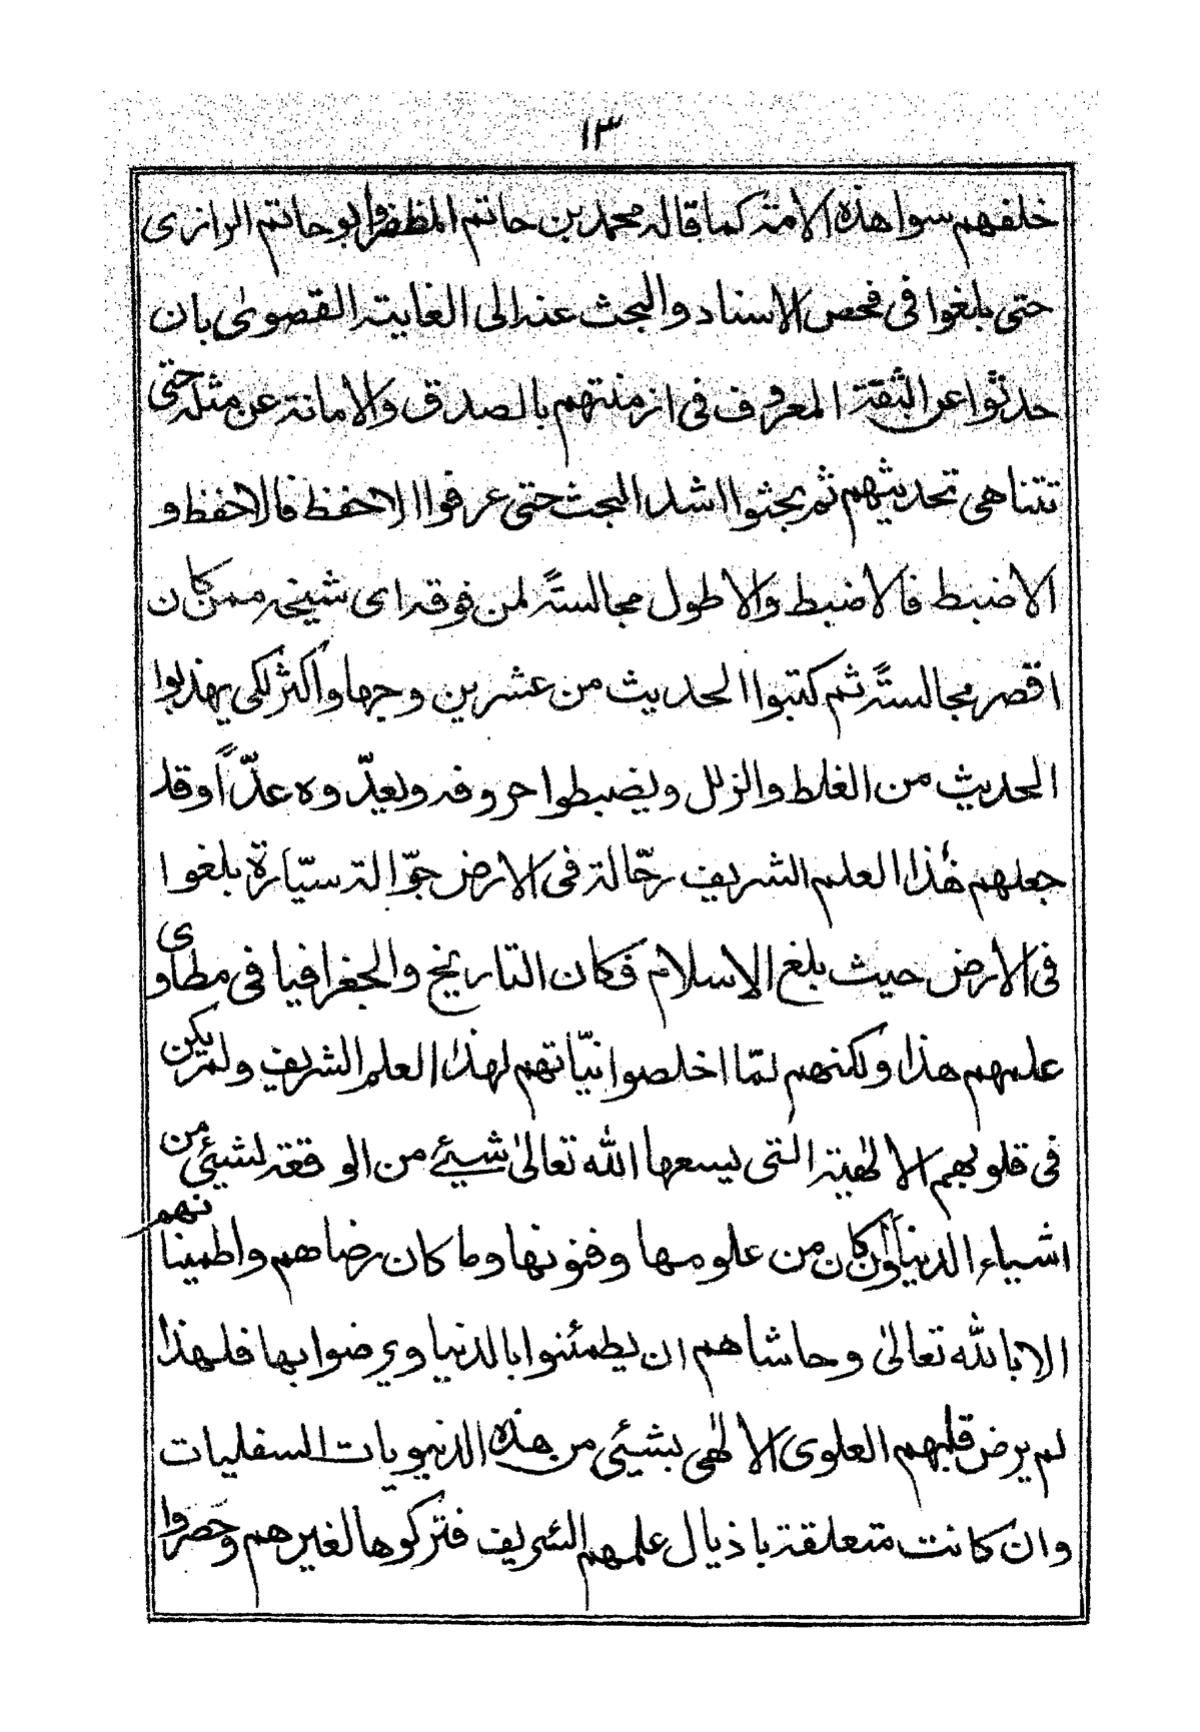 ١٣
خلفهم سوا هذه الامة كما قاله محمد بن حاتم المظفر وابو حاتم الرازى
حتى بلغوا فى فحص الاسناد والبحث عنه الى الغاية القصوىٰ بان
حدثوا عن الثقة المعروف فى ازمنتهم بالصدق والامانة عن مثله حتى
تتناهى تحديثهم ثم بحثوا اشد البحث حتى عرفوا الاحفظ فالاحفظ و
الاضبط فالاضبط والاطول مجالسةً لمن فوقه اى شيخه ممن كان
اقصر مجالسةً ثم كتبوا الحديث من عشرين وجها واكثر لكى يهذبوا
الحديث من الغلط والزلل ويضبطوا حروفه ويعدّوه عدّاً وقد
جعلهم هٰذا العلم الشريف رحّالة فى الارض جوّالة سيّارة بلغوا
فى الارض حيث بلغ الاسلام فكان التاريخ والجغرافيا فى مطاوى
علمهم هذا ولكنهم لمّا اخلصوا نيّاتهم لهذا العلم الشريف ولم يكن
فى قلوبهم الالٰهية التى يسعها الله تعالىٰ شيئ من الوقعة لشيئ من
اشياء الدنيا وان كان من علومها وفنونها وما كان رضاهم واطمينانهم
الا بالله تعالىٰ وحاشاهم ان يطمئنوا بالدنيا ويرضوا بها فلهذا
لم يرض قلبهم العلوى الالٰهى بشيئى من هذه الدنيويات السفليات
وان كانت متعلقة باذيال علمهم الشريف فتركوها لغيرهم وحصروا